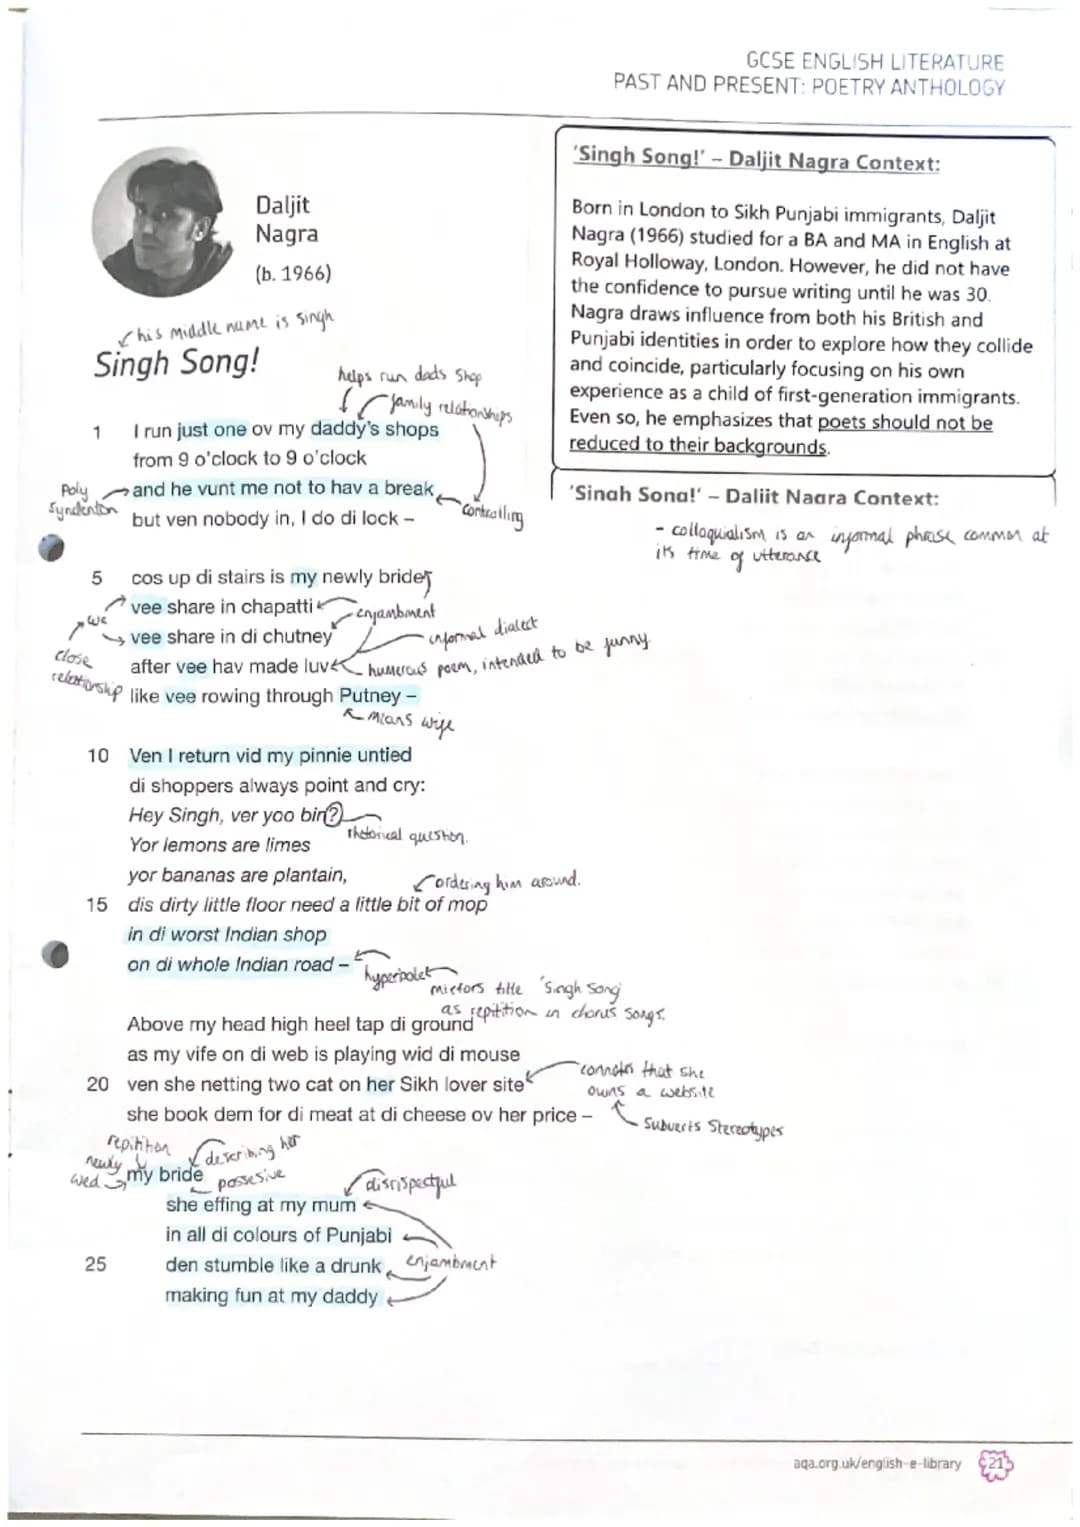 GCSE ENGLISH LITERATURE
PAST AND PRESENT: POETRY ANTHOLOGY
Daljit
Nagra
(b. 1966)
'Singh Song!' – Daljit Nagra Context:
Born in London to Sikh Punjabi immigrants, Daljit
Nagra (1966) studied for a BA and MA in English at
Royal Holloway, London. However, he did not have
the confidence to pursue writing until he was 30.
Nagra draws influence from both his British and
Punjabi identities in order to explore how they collide
and coincide, particularly focusing on his own
experience as a child of first-generation immigrants.
Even so, he emphasizes that poets should not be
reduced to their backgrounds.
'Singh Song!' – Daljit Nagra Context:
- colloquialism is an informal phrase common at
its time of utterance
his middle name is singh
Singh Song!
helps run dads shop
family relationships
1 I run just one ov my daddy's shops
from 9 o'clock to 9 o'clock
Poly
Syndenton
and he vunt me not to hav a break
but ven nobody in, I do di lock –
Controlling
5 cos up di stairs is my newly bride
vee share in chapatti
enjambment
we
vee share in di chutney
informal dialect
close
relationship
after vee hav made luv
humerous poem, intended to be funny.
like vee rowing through Putney –
means wife
10 Ven I return vid my pinnie untied
di shoppers always point and cry:
Hey Singh, ver yoo bin?
rhetorical question.
Yor lemons are limes
yor bananas are plantain,
ordering him around.
15 dis dirty little floor need a little bit of mop
in di worst Indian shop
on di whole Indian road –
hyperbole
mirrors title 'Singh Song'
as repitition in chorus songs.
Above my head high heel tap di ground
as my vife on di web is playing wid di mouse
connotes that she
owns a website
20 ven she netting two cat on her Sikh lover site
she book dem for di meat at di cheese ov her price –
Subverts Stereotypes
repitition
describing her
newly
wed
my bride
possesive
disrispectful
she effing at my mum
in all di colours of Punjabi
25 den stumble like a drunk
enjambment
making fun at my daddy
aqa.org.uk/english-e-library
21